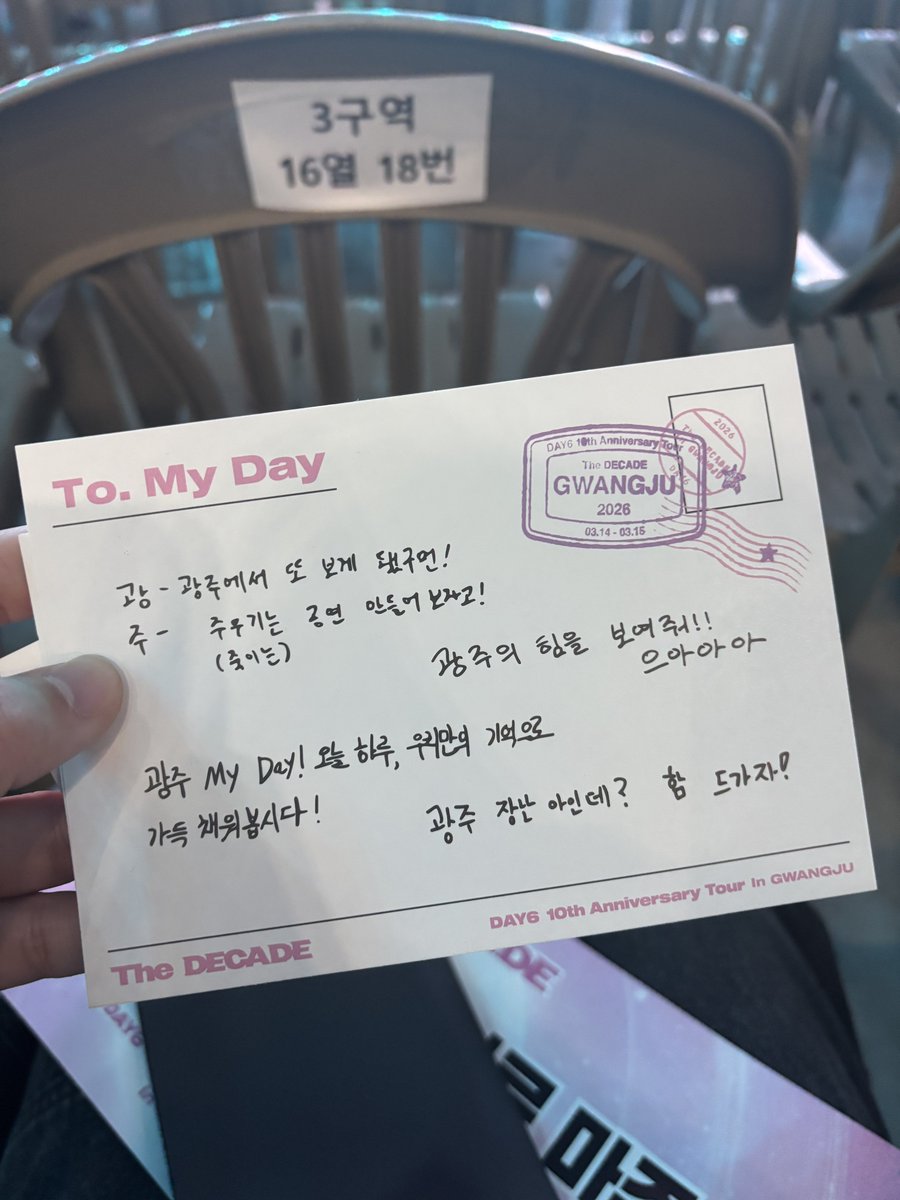 3구역
16열 18번
To. My Day
DAY6 10th Anniversary Tour
The DECADE
GWANGJU
2026
03.14 - 03.15
2026
광 - 광주에서 또 보게 됐구먼!
주 - 주우기는 공연 만들어 보자고!
(죽이는)
광주의 힘을 보여줘!!
으아아아
광주 My Day! 오늘 하루, 우리만의 기억으로
가득 채워봅시다!
광주 장난 아인데? 함 드가자!
DAY6 10th Anniversary Tour In GWANGJU
The DECADE
DAY6